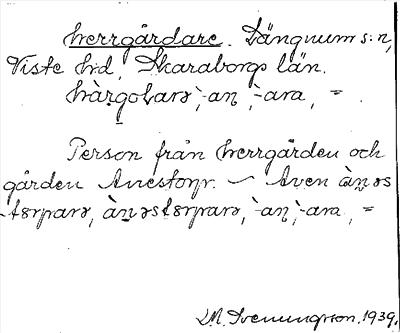 herrgårdare. Längnum s:n,
Viste hd, Skaraborgs län.
hàrgoLarə, -an, -ara, =
Person från herrgården och
gården Anestorp. — Även àn əs
-tərparə, àn əstərparə, -an, -ara, =
M. Svenungson. 1939.